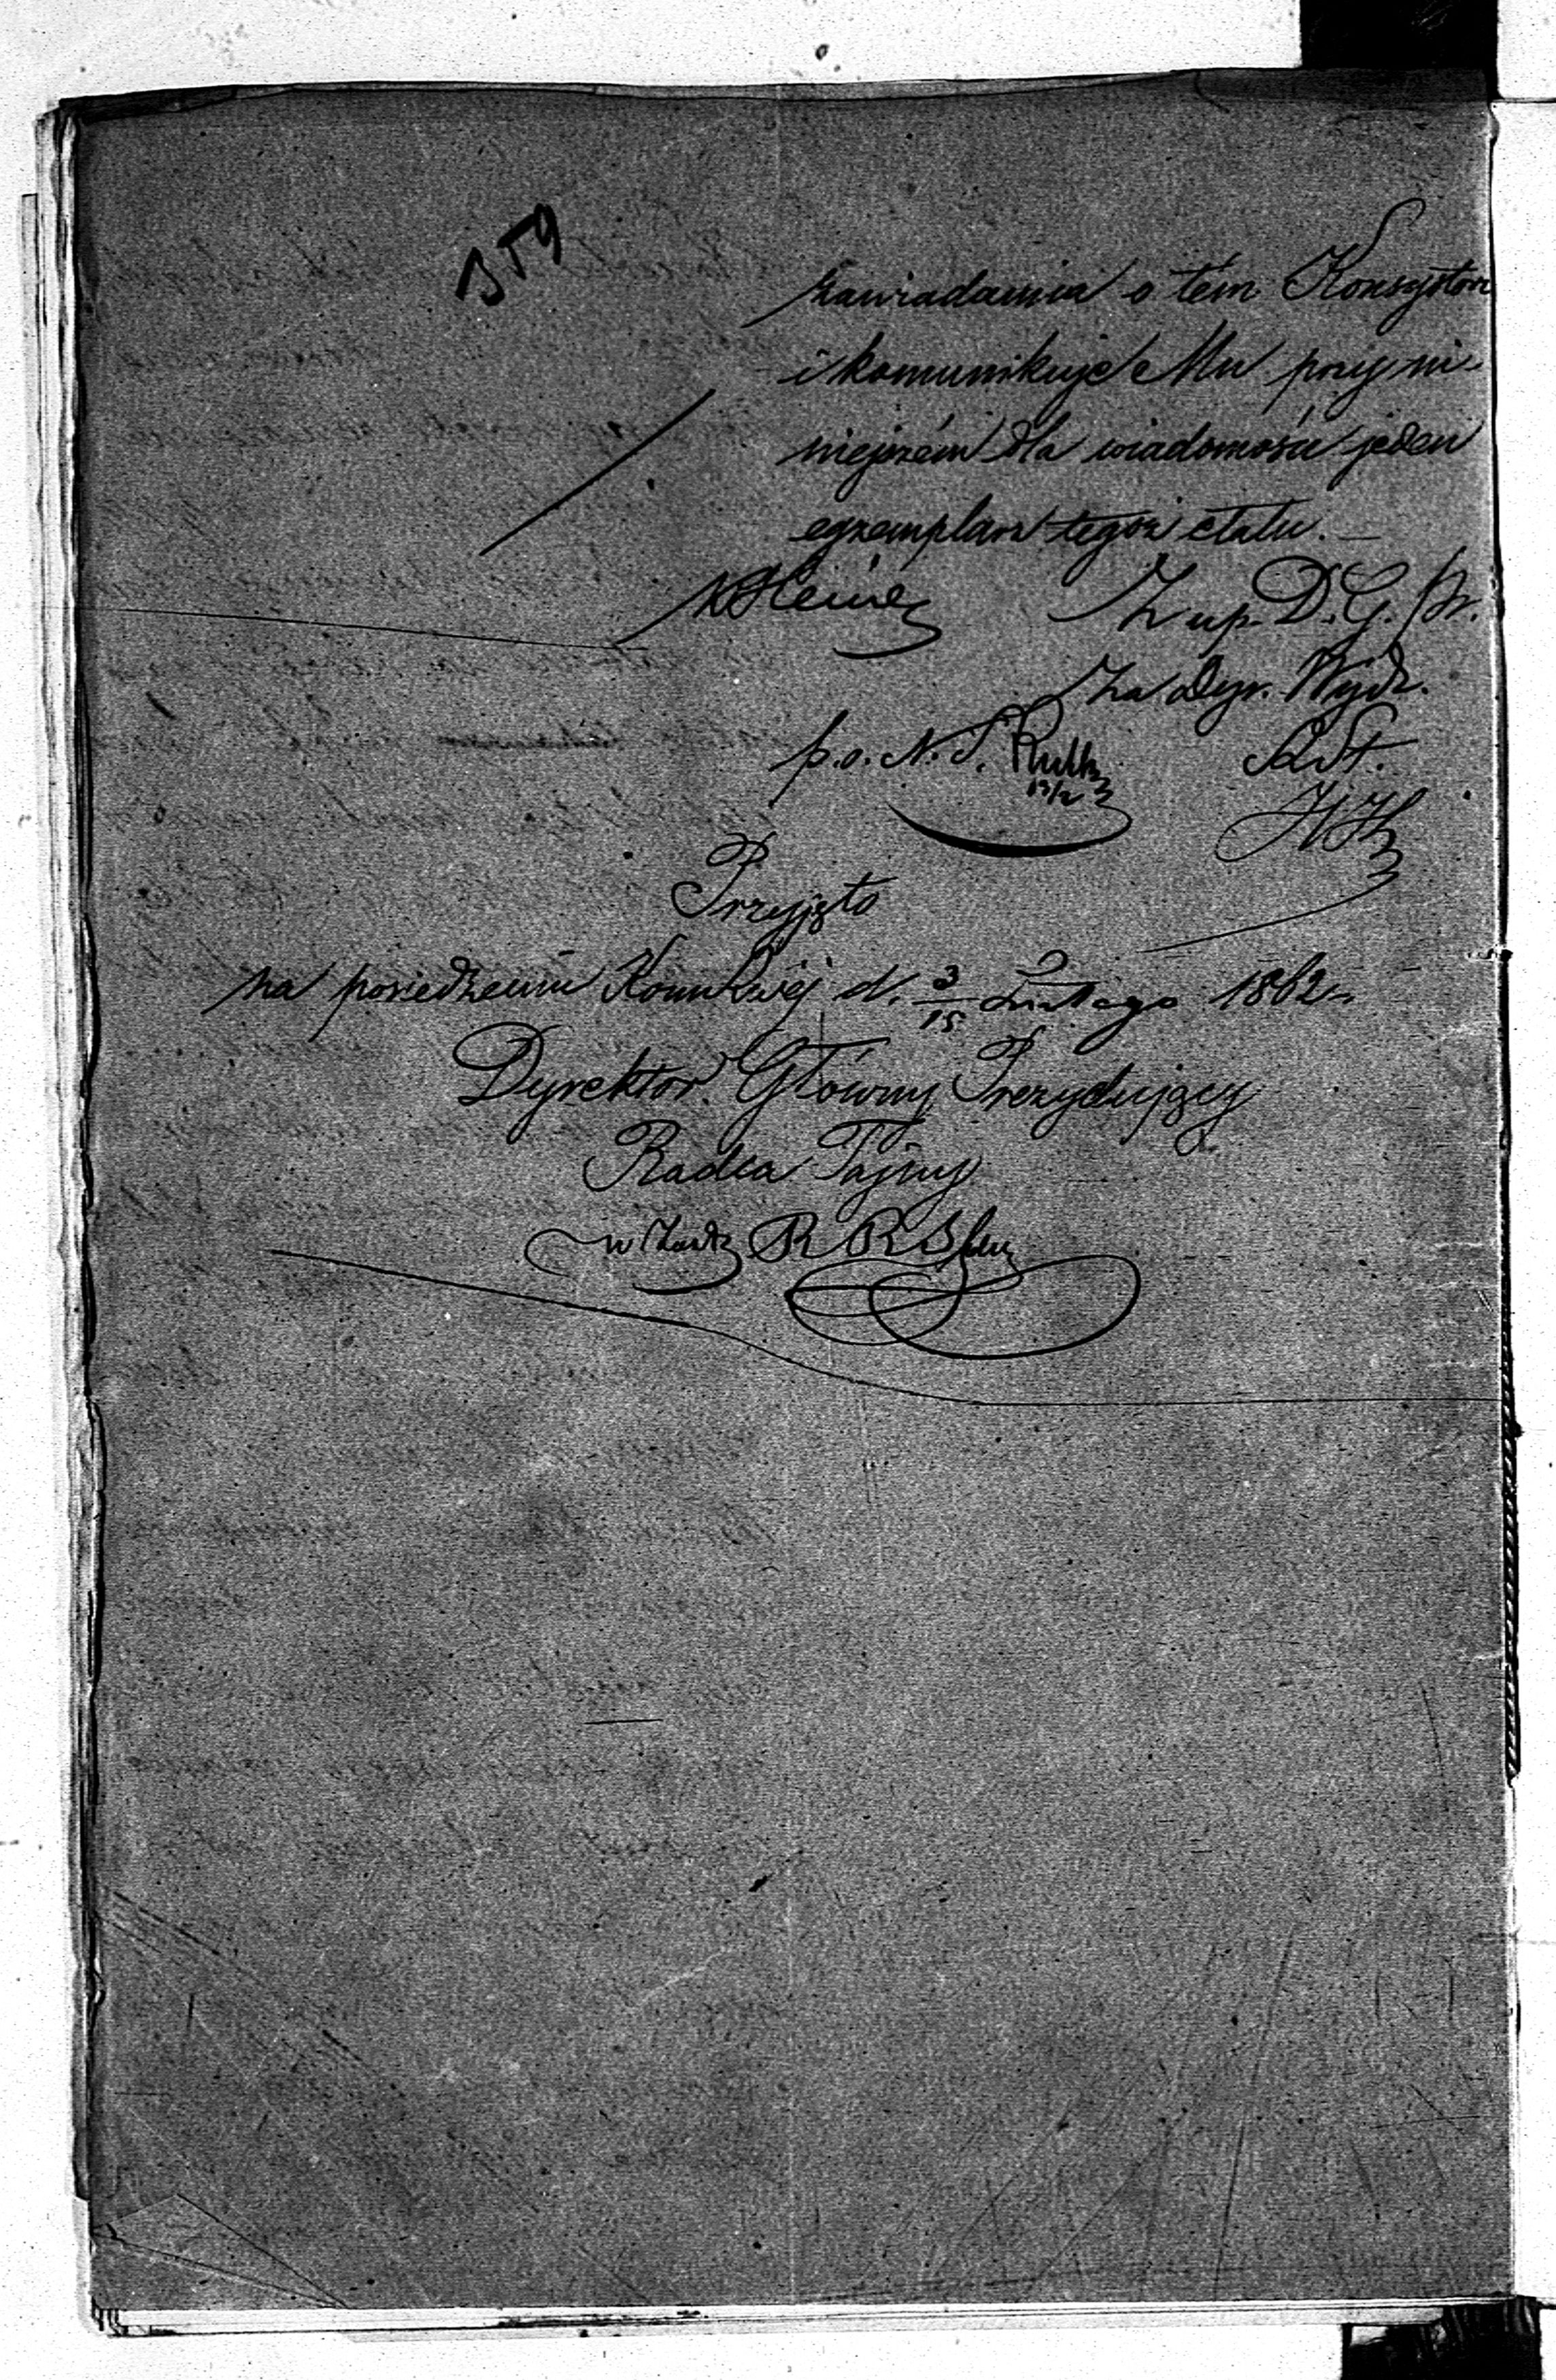 359
zawiadamia o tém Konsystorz
i komunikuje Mu przy ni-
niejszém dla wiadomości jeden
egzemplarz tegoż etatu. —
Z up. D. G. Pr.
za Dyr. Wydz.
p.o. N. S.
R. St.
Przyjęto
na posiedzeniu Kommissyi d. 3/15 Lutego 1862 r.
Dyrektor Główny Prezydujący
Radca Tajny